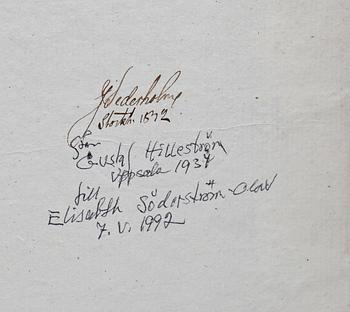 J Sederholm
Stockh. 1872
från
Gustaf Hilleström
Uppsala 1937
till
Elisabeth Söderström-Olow
7. V. 1992